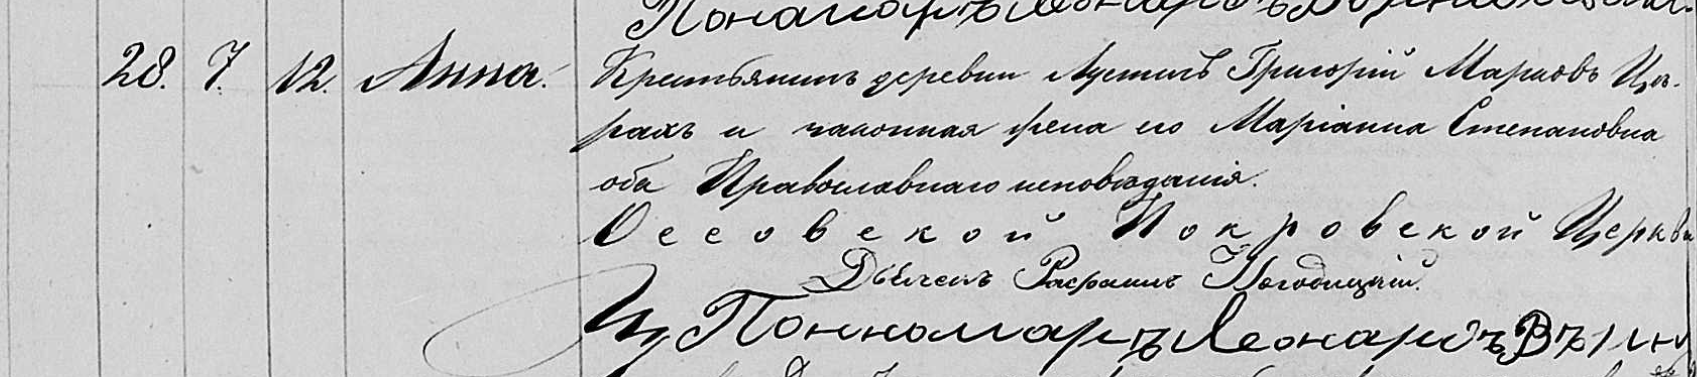 Пономарь Леонардъ
28. 7. 12. Анна. Крестьянинъ деревни Григорій Марковъ Ца-
рахъ и законная жена его Маріанна Степановна
оба Православнаго исповѣданія.
Оссовской Покровской Церкви
Дьячекъ
И Пономарь Леонардъ